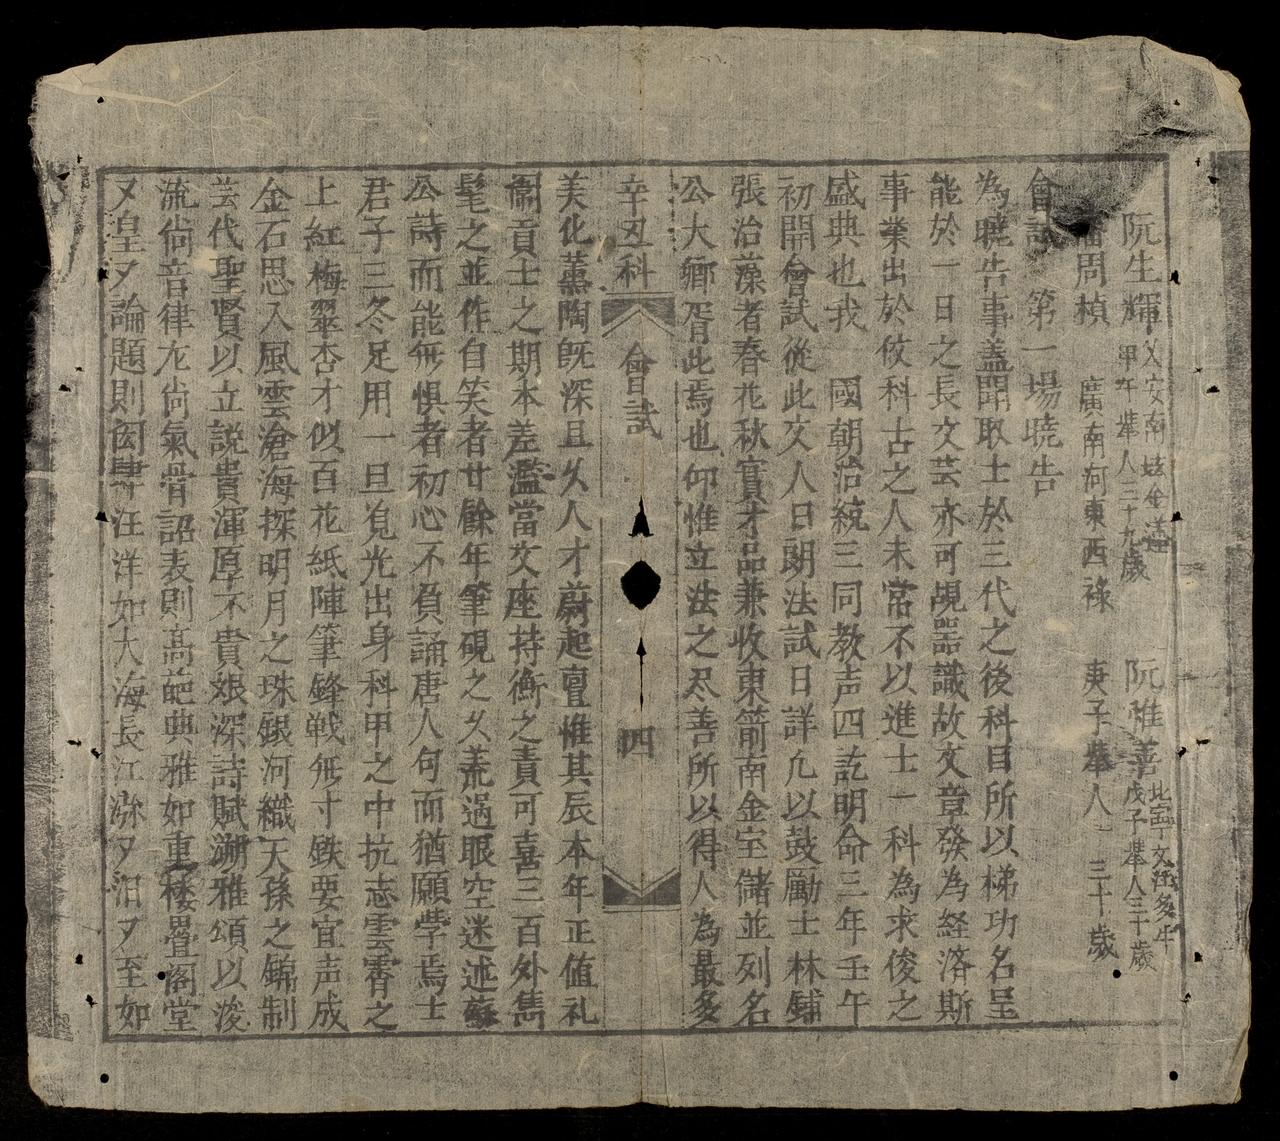 阮生輝 乂安南 甲午舉人三十九歲 阮惟善 北寧文江多牛 戊子舉人三十歲
潘周楨 廣南河東西祿 庚子舉人 三十歲
會試第一場曉告
為曉告事盖聞取士於三代之後科目所以梯功名呈
能於一日之長文芸亦可覘器識故文章發為経済斯
事業出於佼科古之人未常不以進士一科為求俊之
盛典也我 國朝治統三同教声四訖明命三年壬午
初開會試從此文人日朗法試日詳凢以鼓勵士林鋪
張治藻者春花秋實才品兼收東箭南金室儲並列名
公大卿胥此焉也仰惟立法之尽善所以得人為最多
辛丑科 會試 四
美化薫陶旣深且久人才蔚起亶惟其辰本年正值礼
闈貢士之期本差濫當文座持衡之責可喜三百外雋
髦之並作自笑者廿餘年筆硯之久荒過眼空迷述蘇
公詩而能無惧者初心不負誦唐人句而猶願學焉士
君子三冬足用一旦覓光出身科甲之中抗志雲霄之
上紅梅翠杏才似百花紙陣筆鋒戦無寸鉄要宜声成
金石思入風雲滄海探明月之珠銀河織天孫之錦制
芸代聖賢以立説貴渾厚不貴艰深詩賦溯雅頌以浚
流尙音律尤尙氣骨詔表則髙葩典雅如重楼疊阁堂
又皇又論題則闳肆汪洋如大海長江淼又汨又至如